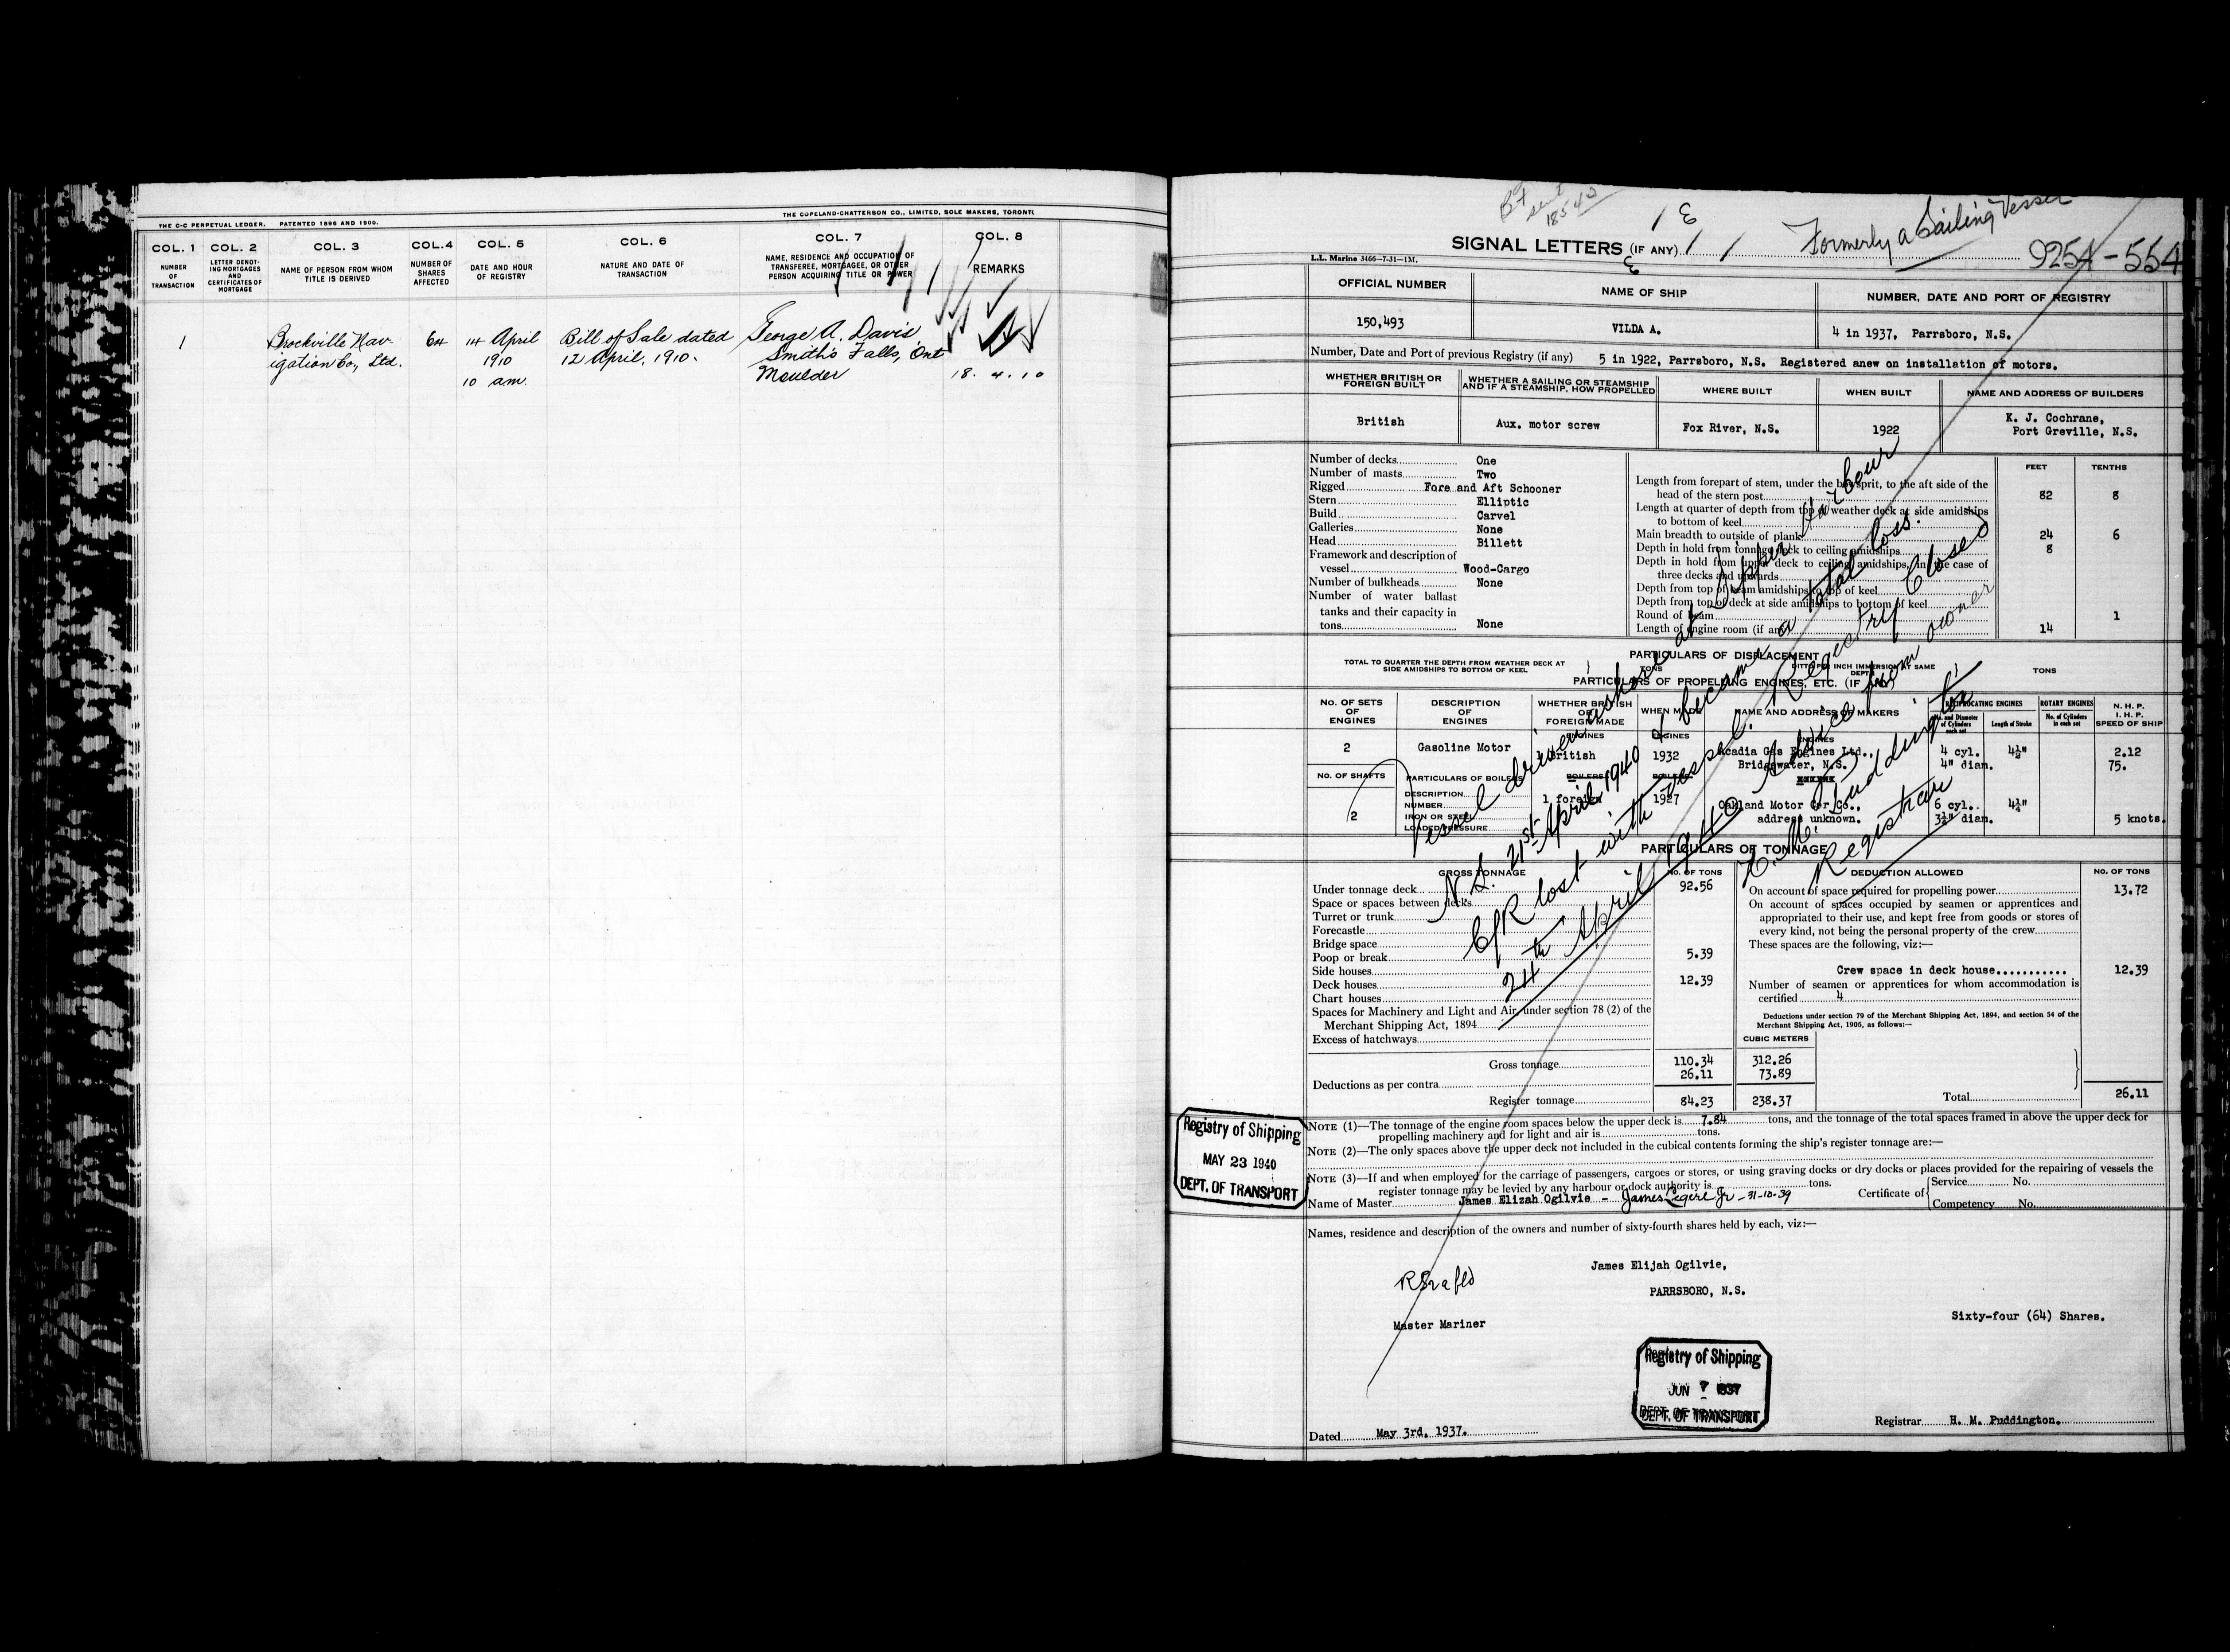 THE C-C PERPETUAL LEDGER. PATENTED 1896 AND 1900.
THE COPELAND-CHATTERSON CO., LIMITED, SOLE MAKERS, TORONTO
COL. 1 COL. 2 COL. 3 COL.4 COL. 5 COL. 6 COL. 7 COL. 8
NUMBER OF TRANSACTION
LETTER DENOTING MORTGAGES AND CERTIFICATES OF MORTGAGE
NAME OF PERSON FROM WHOM TITLE IS DERIVED
NUMBER OF SHARES AFFECTED
DATE AND HOUR OF REGISTRY
NATURE AND DATE OF TRANSACTION
NAME, RESIDENCE AND OCCUPATION OF TRANSFEREE, MORTGAGEE, OR OTHER PERSON ACQUIRING TITLE OR POWER
REMARKS
1 Brockville Nav- 64 14 April Bill of Sale dated George A. Davis
igation Co., Ltd. 1910 12 April, 1910. Smith's Falls, Ont
10 am. Moulder 18. 4. 10
Formerly a Sailing Vessel
SIGNAL LETTERS (IF ANY)
9254-554
L.L. Marine 3466-7-31-1M.
OFFICIAL NUMBER NAME OF SHIP NUMBER, DATE AND PORT OF REGISTRY
150,493 VILDA A. 4 in 1937, Parrsboro, N.S.
Number, Date and Port of previous Registry (if any) 5 in 1922, Parrsboro, N.S. Registered anew on installation of motors.
WHETHER BRITISH OR FOREIGN BUILT
WHETHER A SAILING OR STEAMSHIP AND IF A STEAMSHIP, HOW PROPELLED
WHERE BUILT WHEN BUILT NAME AND ADDRESS OF BUILDERS
British Aux. motor screw Fox River, N.S. 1922 K. J. Cochrane,
Port Greville, N.S.
Number of decks One
Number of masts Two
Rigged Fore and Aft Schooner
Stern Elliptic
Build Carvel
Galleries None
Head Billett
Framework and description of
vessel Wood-Cargo
Number of bulkheads None
Number of water ballast
tanks and their capacity in
tons None
FEET TENTHS
Length from forepart of stem, under the bowsprit, to the aft side of the
head of the stern post 82 8
Length at quarter of depth from top of weather deck at side amidships
to bottom of keel
Main breadth to outside of plank 24 6
Depth in hold from tonnage deck to ceiling amidships 8
Depth in hold from upper deck to ceiling amidships, in the case of
three decks and upwards
Depth from top of beam amidships to top of keel
Depth from top of deck at side amidships to bottom of keel
Round of beam 1
Length of engine room (if any) 14
PARTICULARS OF DISPLACEMENT
TOTAL TO QUARTER THE DEPTH FROM WEATHER DECK AT SIDE AMIDSHIPS TO BOTTOM OF KEEL TONS
DITTO PER INCH IMMERSION AT SAME DEPTH TONS
PARTICULARS OF PROPELLING ENGINES, ETC. (IF ANY)
NO. OF SETS OF ENGINES
DESCRIPTION OF ENGINES
WHETHER BRITISH OR FOREIGN MADE
WHEN MADE
NAME AND ADDRESS OF MAKERS
RECIPROCATING ENGINES
No. and Diameter of Cylinders each set
Length of Stroke
ROTARY ENGINES
No. of Cylinders in each set
N. H. P.
I. H. P.
SPEED OF SHIP
ENGINES ENGINES ENGINES
2 Gasoline Motor 1 British 1932 Acadia Gas Engines Ltd., 4 cyl. 4½" 2.12
Bridgewater, N.S. 4" diam. 75.
NO. OF SHAFTS PARTICULARS OF BOILERS BOILERS BOILERS
DESCRIPTION
NUMBER 1 foreign 1927 Oakland Motor Car Co., 6 cyl. 4¼"
2 IRON OR STEEL address unknown. 3½" diam. 5 knots.
LOADED PRESSURE
PARTICULARS OF TONNAGE
GROSS TONNAGE NO. OF TONS
Under tonnage deck 92.56
Space or spaces between decks
Turret or trunk
Forecastle
Bridge space
Poop or break 5.39
Side houses
Deck houses 12.39
Chart houses
Spaces for Machinery and Light and Air, under section 78 (2) of the
Merchant Shipping Act, 1894
Excess of hatchways
CUBIC METERS
Gross tonnage 110.34 312.26
Deductions as per contra 26.11 73.89
Register tonnage 84.23 238.37
DEDUCTION ALLOWED NO. OF TONS
On account of space required for propelling power 13.72
On account of spaces occupied by seamen or apprentices and
appropriated to their use, and kept free from goods or stores of
every kind, not being the personal property of the crew
These spaces are the following, viz:—
Crew space in deck house 12.39
Number of seamen or apprentices for whom accommodation is
certified 4
Deductions under section 79 of the Merchant Shipping Act, 1894, and section 54 of the
Merchant Shipping Act, 1906, as follows:—
Total 26.11
Vessel driven ashore at Dipper Harbour
N.S. 21st April 1940 & became a total loss.
C/R lost with vessel. Registry Closed
24th April 1940 Advice from owner
H. M. Puddington
Registrar
Registry of Shipping
MAY 23 1940
DEPT. OF TRANSPORT
NOTE (1)—The tonnage of the engine room spaces below the upper deck is 7.84 tons, and the tonnage of the total spaces framed in above the upper deck for
propelling machinery and for light and air is tons.
NOTE (2)—The only spaces above the upper deck not included in the cubical contents forming the ship's register tonnage are:—
NOTE (3)—If and when employed for the carriage of passengers, cargoes or stores, or using graving docks or dry docks or places provided for the repairing of vessels the
register tonnage may be levied by any harbour or dock authority is tons.
Name of Master James Elizah Ogilvie - James Legere Jr - 31-10-39 Certificate of Service No.
Competency No.
Names, residence and description of the owners and number of sixty-fourth shares held by each, viz:—
James Elijah Ogilvie,
PARRSBORO, N.S.
Master Mariner Sixty-four (64) Shares.
Registry of Shipping
JUN 7 1937
DEPT. OF TRANSPORT
Dated May 3rd. 1937.
Registrar H. M. Puddington.